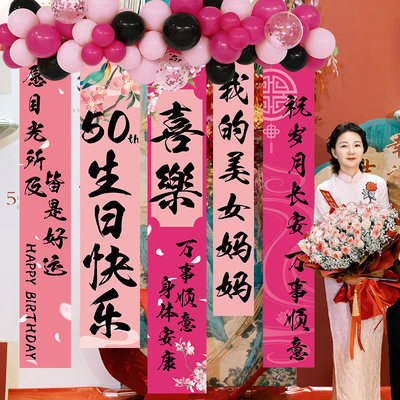 愿目光所及
皆是好运
HAPPY BIRTHDAY
50th
生日快乐
喜樂
万事顺意
身体安康
我的美女妈妈
祝岁月长安
万事顺意